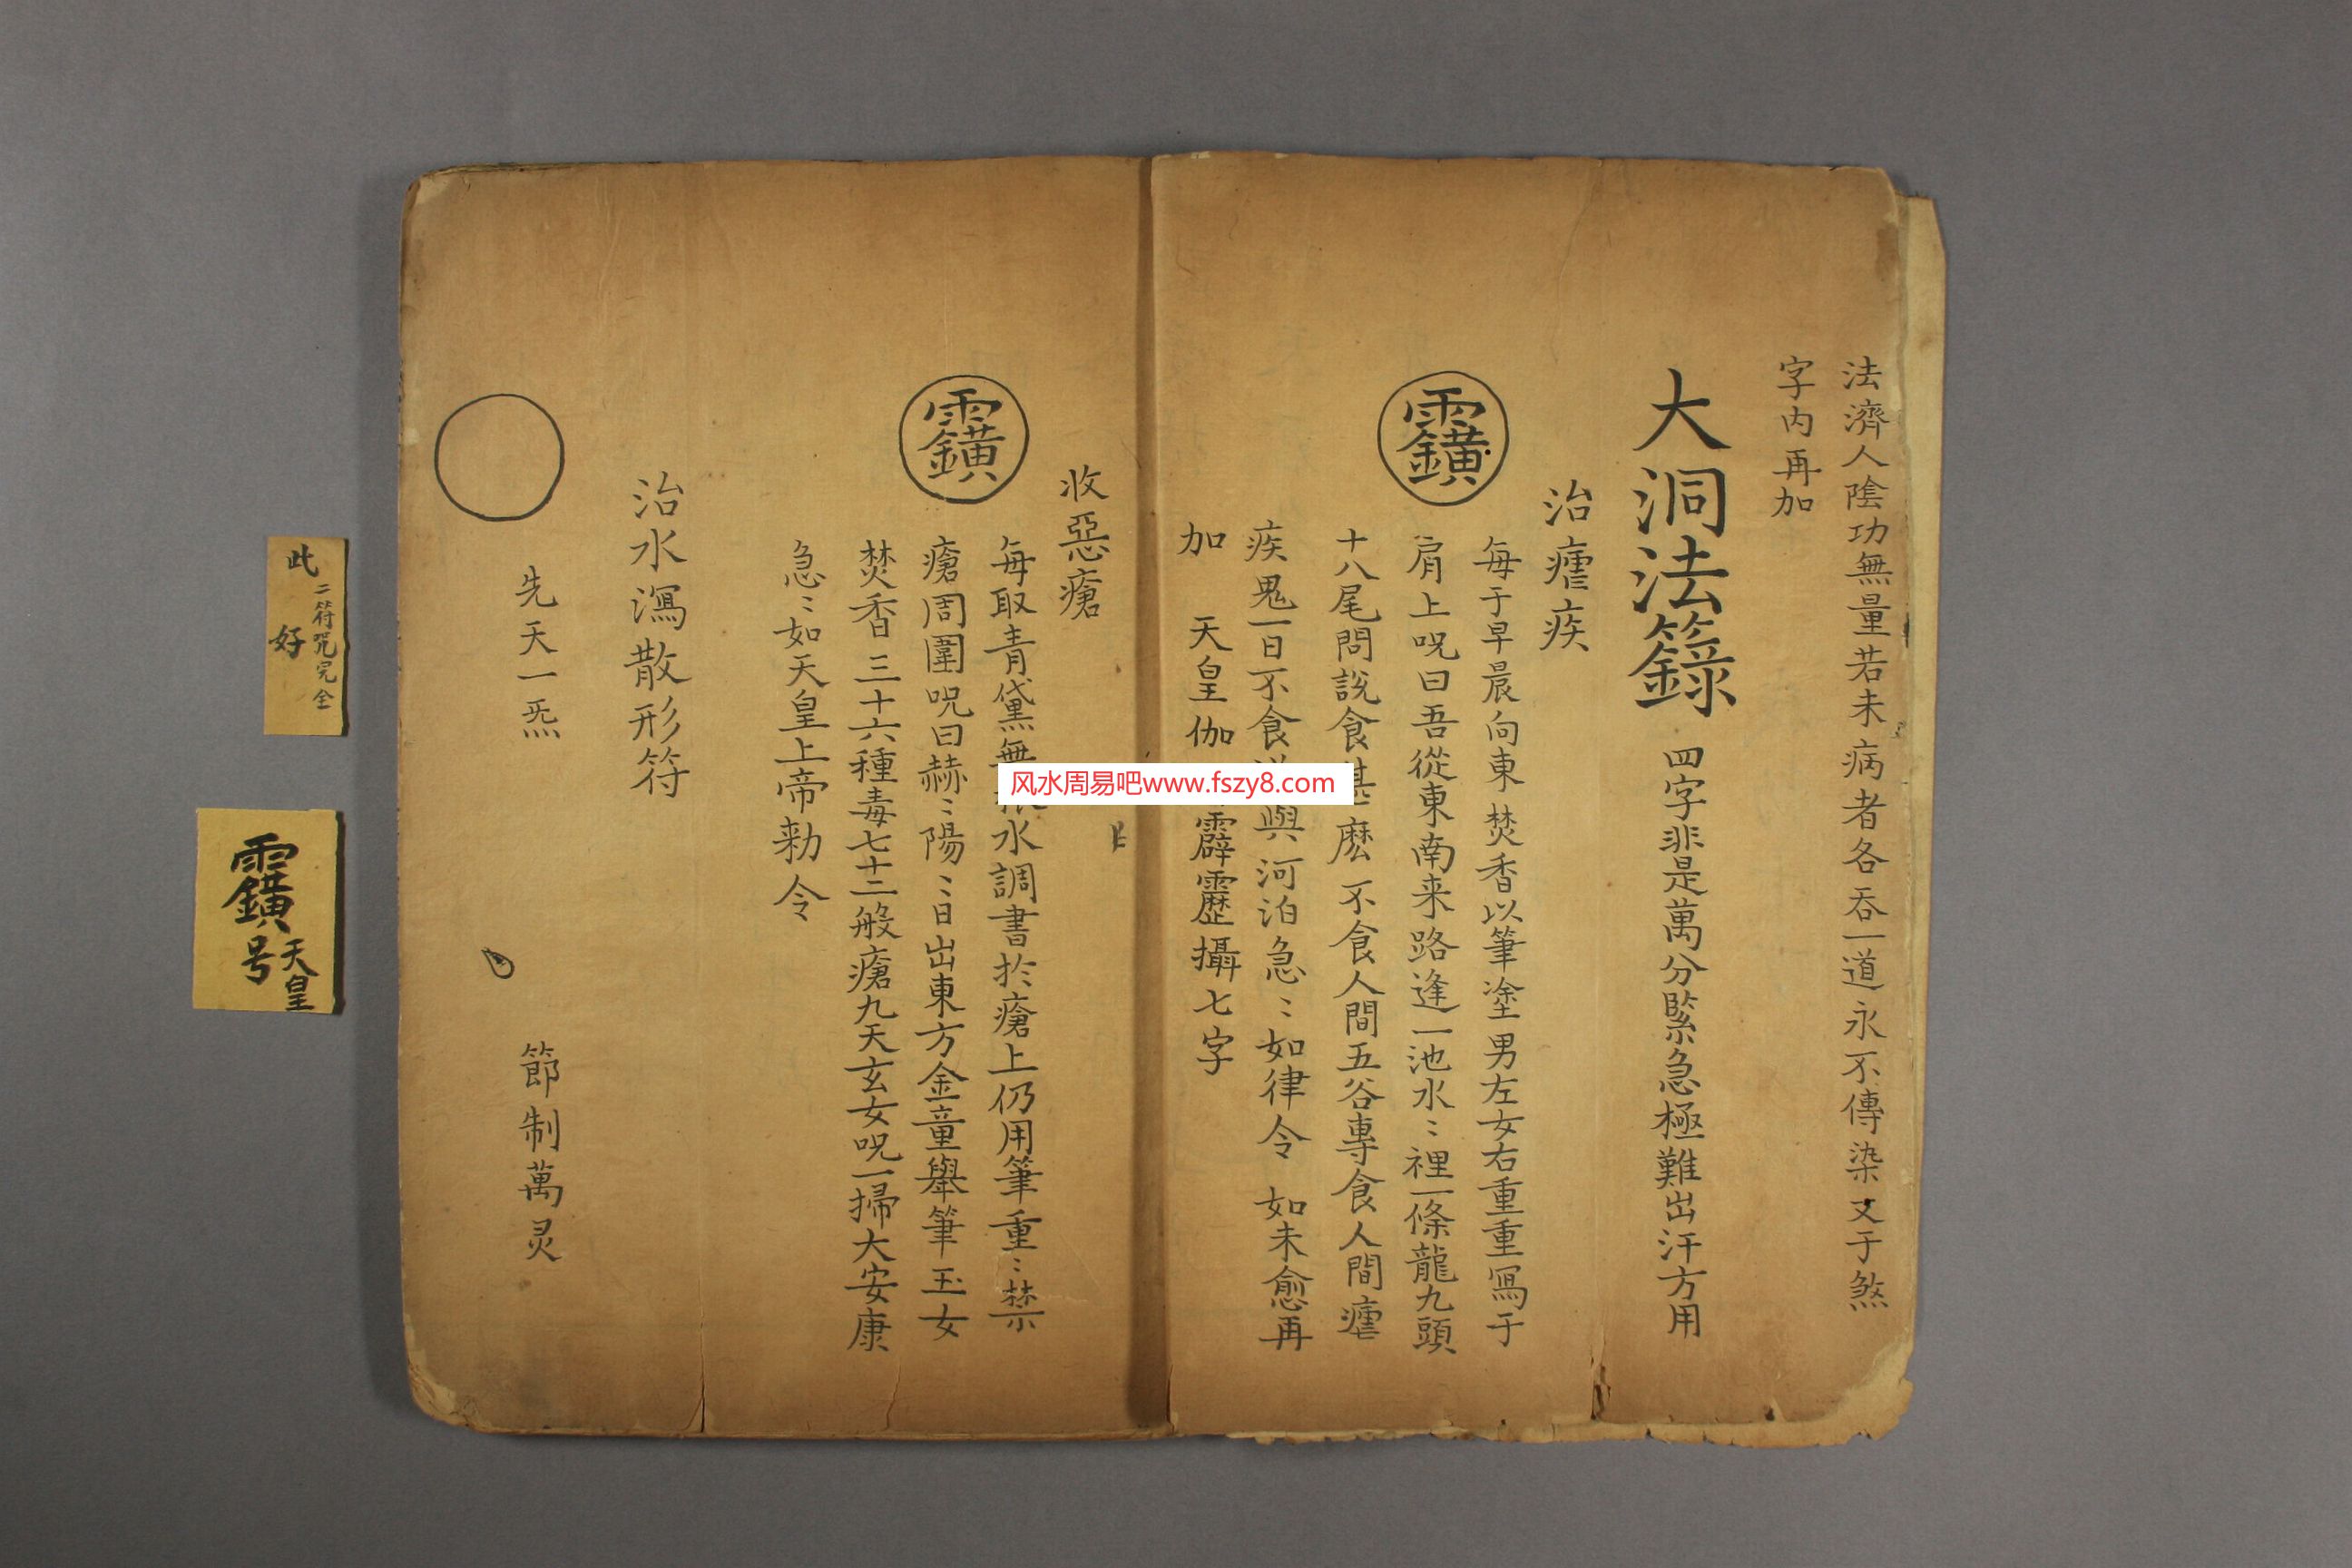 法濟人陰功無量若未病者各吞一道永不傳染又于煞
字內再加
大洞法籙 四字非是萬分緊急極難出汗方用
治瘧疾
每于早晨向東焚香以筆塗男左女右重重寫于
肩上呪曰吾從東南来路逢一池水〻裡一條龍九頭
十八尾問說食甚麽不食人間五谷專食人間瘧
疾鬼一日不食 與河泊急〻如律令 如未愈再
加 天皇伽 霹靂攝七字
收惡瘡
每取青黛無 水調書於瘡上仍用筆重〻禁
瘡周圍呪曰赫〻陽〻日出東方金童舉筆玉女
焚香三十六種毒七十二般瘡九天玄女呪一掃大安康
急〻如天皇上帝勅令
治水瀉散形符
先天一炁 節制萬灵
此二符咒完全
好
天皇
号
风水周易吧www.fszy8.com